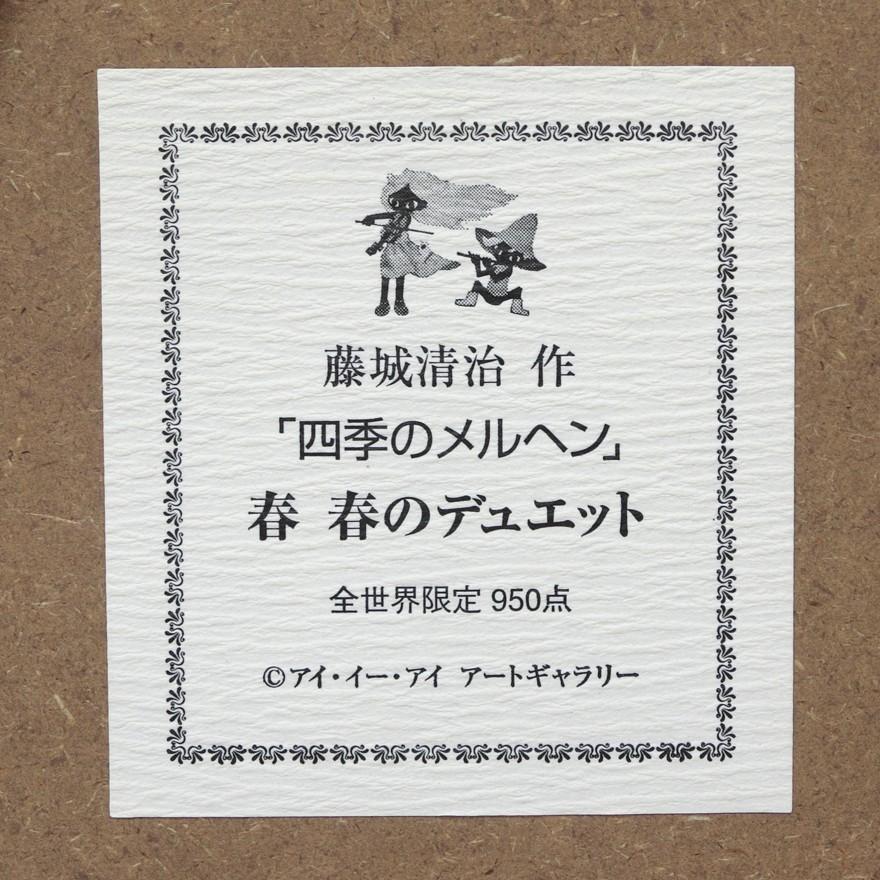 藤城清治 作
「四季のメルヘン」
春 春のデュエット
全世界限定 950点
©アイ・イー・アイ アートギャラリー